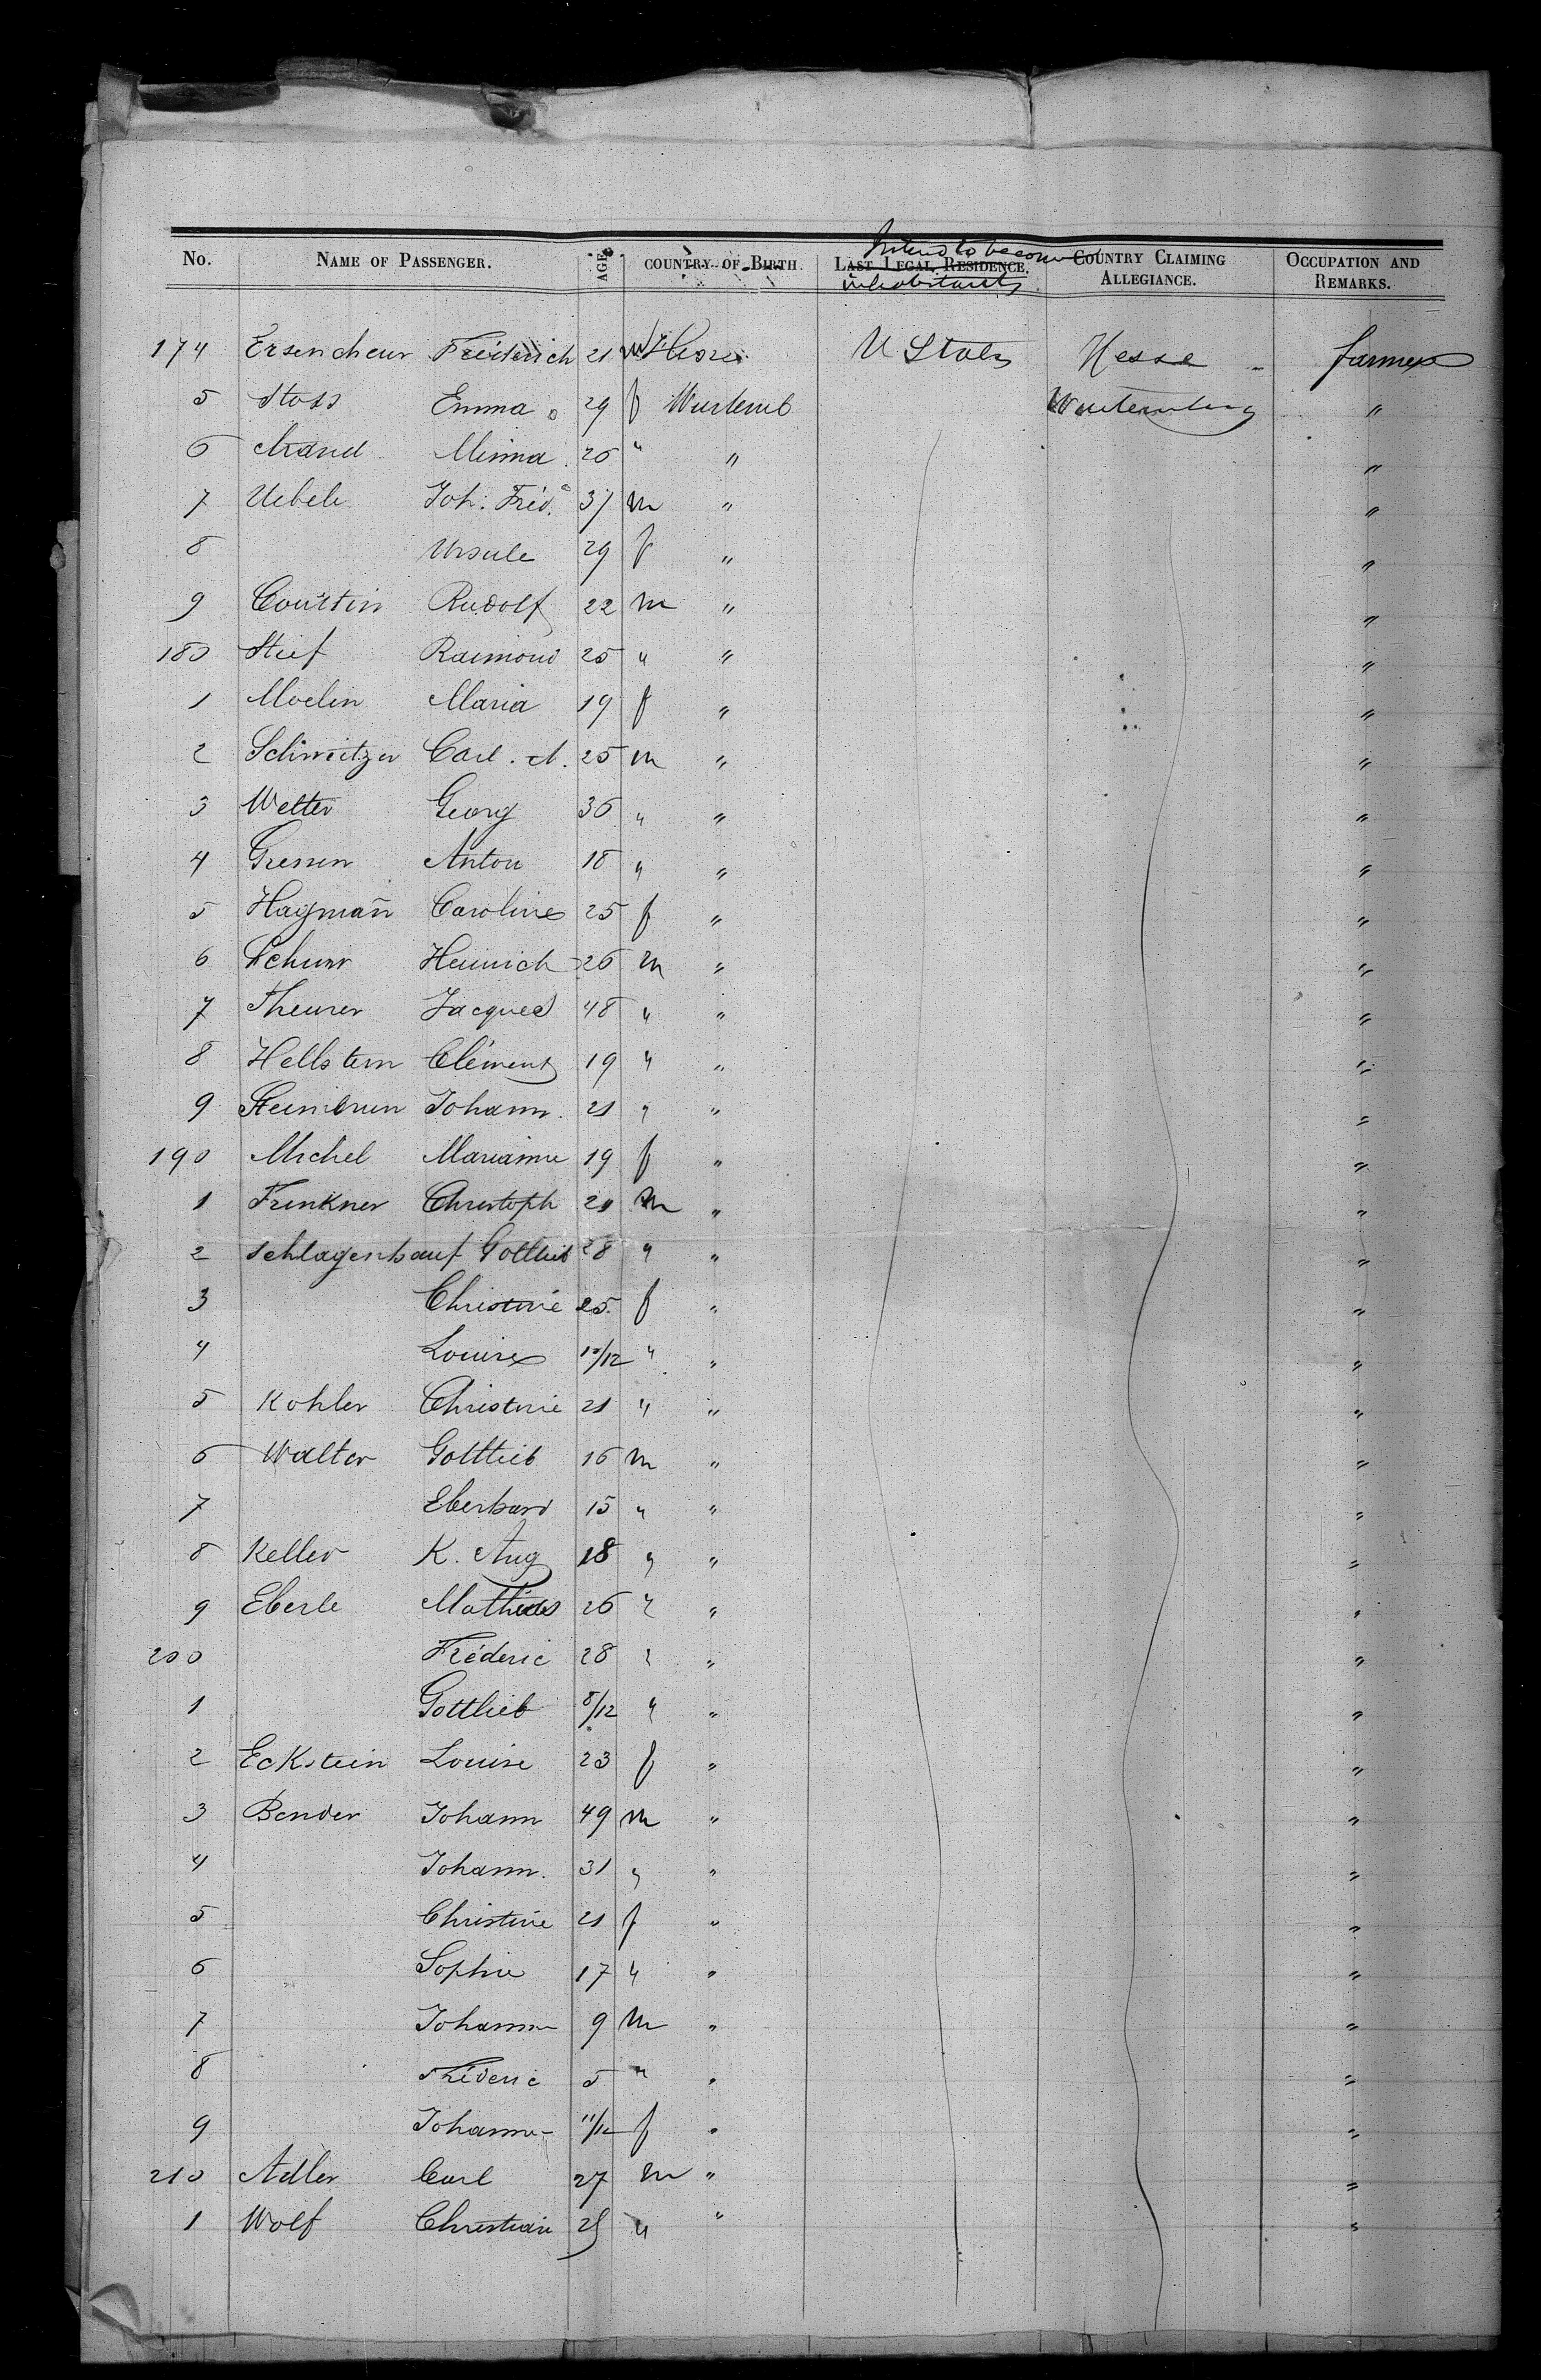 Intend to become
No. NAME OF PASSENGER. AGE COUNTRY OF BIRTH. LAST LEGAL RESIDENCE. COUNTRY CLAIMING ALLEGIANCE. OCCUPATION AND REMARKS.
inhabitants
174 Ersencheur Fréderich 21 m Hesse U States Hesse farmer
5 Stoss Emma 29 f Wurtemb Wurtemberg "
6 Minna 26 " " "
7 Uebele Joh. Fréd. 37 m " "
8 Ursule 29 f " "
9 Couttin Rudolf 22 m " "
180 Stief Raimond 25 " " "
1 Moelin Maria 19 f " "
2 Schweitzer Carl. A. 25 m " "
3 Wetter Georg 36 " " "
4 Gressen Anton 18 " " "
5 Haymañ Caroline 25 f " "
6 Schurr Heinrich 26 m " "
7 Theurer Jacques 48 " " "
8 Hellstern Clément 19 " " "
9 Steinbrun Johann. 21 " " "
190 Michel Marianne 19 f " "
1 Frinkner Christoph 21 m " "
2 Schlagenhauf Gottlieb 28 " " "
3 Christine 25. f " "
4 Louise 10/12 " " "
5 Kohler Christine 21 " " "
6 Walter Gottlieb 16 m " "
7 Eberhard 15 " " "
8 Keller K. Aug 18 " " "
9 Eberle Mathias 26 " " "
200 Fréderic 28 " " "
1 Gottlieb 8/12 " " "
2 Eckstein Louise 23 f " "
3 Bender Johann 49 m " "
4 Johann. 31 " " "
5 Christine 21 f " "
6 Sophie 17 " " "
7 Johann 9 m " "
8 Fréderic 5 " " "
9 Johanne 11/12 f " "
210 Adler Carl 27 m " "
1 Wolf Christian 25 " " "